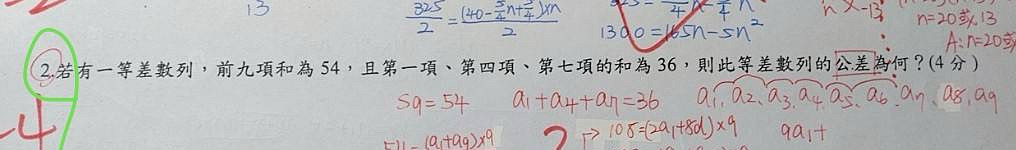 13
325/2 = (40-5/4n+5/4)×n/2
1300=165n-5n²
n=20或13
A:n=20或
2.若有一等差數列，前九項和為 54，且第一項、第四項、第七項的和為 36，則此等差數列的公差為何？(4 分)
-4
S9=54 a1+a4+a7=36 a1、a2、a3、a4、a5、a6、a7、a8、a9
54=(a1+a9)×9
108=(2a1+8d)×9 9a1+